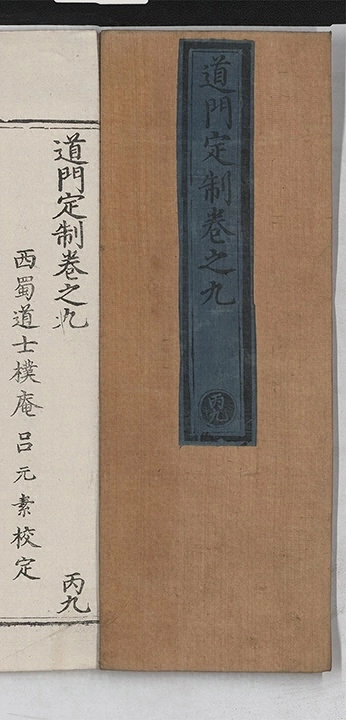 道門定制卷之九
丙九
道門定制卷之九
西蜀道士樸庵呂元素校定
丙九